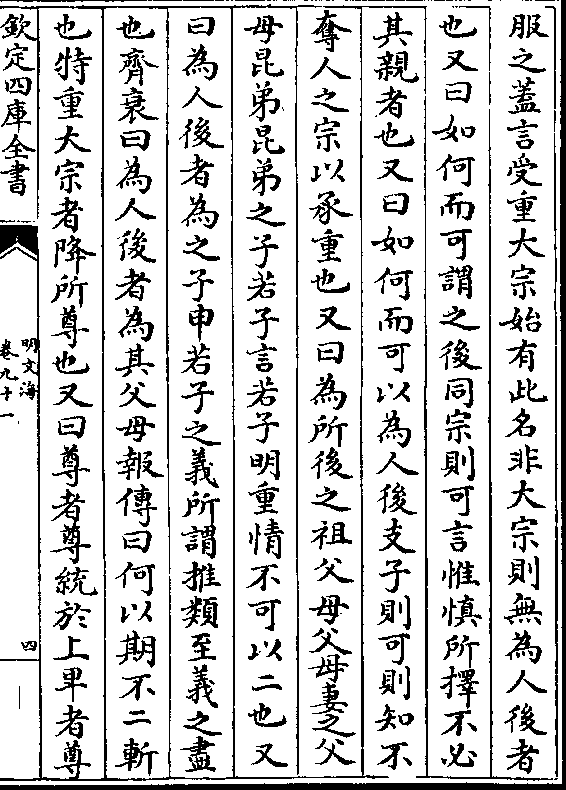 服之蓋言受重大宗始有此名非大宗則無為人後者
也又曰如何而可謂之後同宗則可言惟慎所擇不必
其親者也又曰如何而可以為人後支子則可則知不
奪人之宗以承重也又曰為所後之祖父母父母妻之父
母昆弟昆弟之子若子言若子明重情不可以二也又
曰為人後者為之子申若子之義所謂推類至義之盡
也齊衰曰為人後者為其父母報傳曰何以期不二斬
也特重大宗者降所尊也又曰尊者尊統於上卑者尊
欽定四庫全書
明文海
卷九十一
四